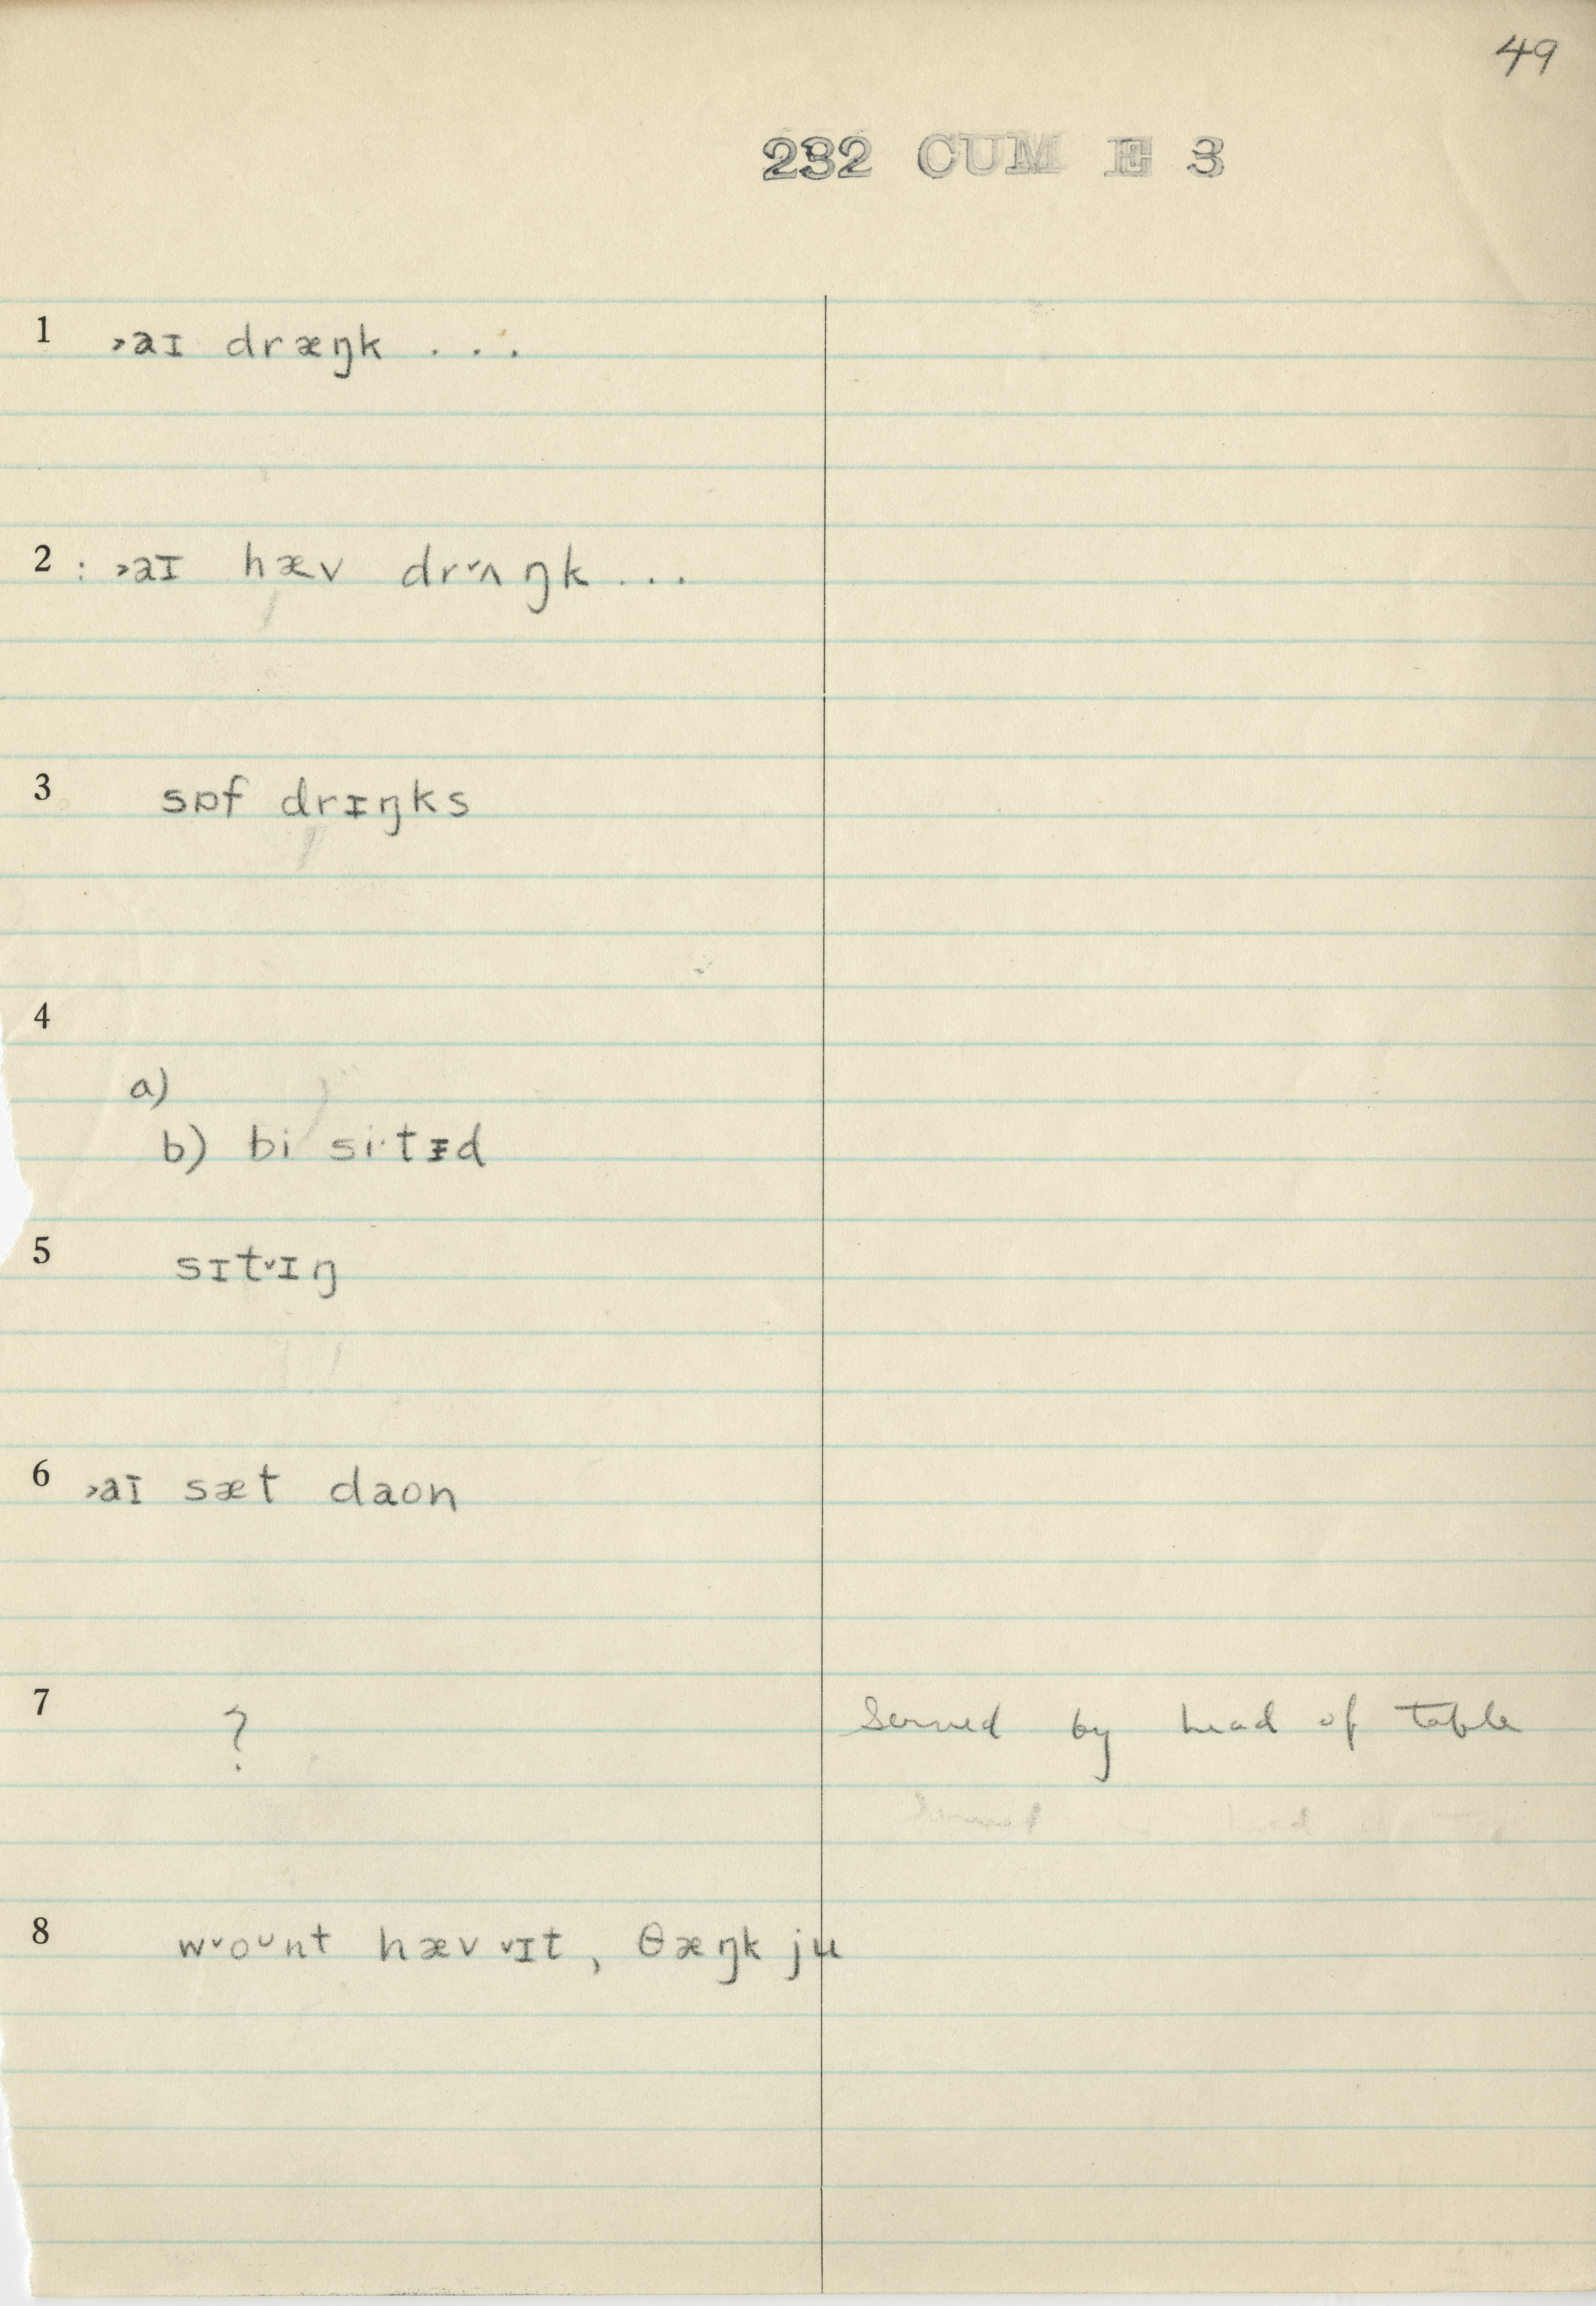 49
232 CUM E 3
1 ˃aɪ dræŋk . . .
2 : ˃aɪ hæv dr˅ʌŋk . . .
3 sɒf drɪŋks
4
a)
b) bi si·tɪd
5 sɪt˅ɪŋ
6 ˃aɪ sæt daon
7 ? Served by head of table
8 w˅oᴗnt hæv ˅ɪt, θæŋk ju